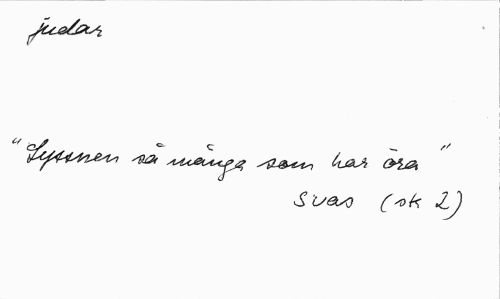 judar
"Lyssnen så många som har öra"
svas (sk 2)